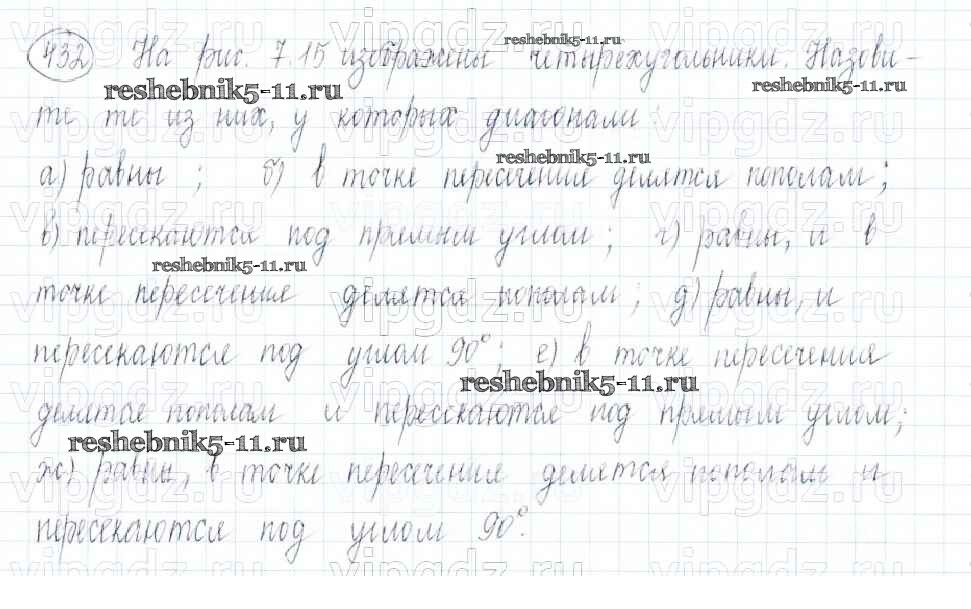 432 На рис. 7.15 изображены четырехугольники. Назови-
те те из них, у которых диагонали:
а) равны ; б) в точке пересечения делятся пополам;
в) пересекаются под прямым углом; г) равны, и в
точке пересечения делятся пополам; д) равны, и
пересекаются под углом 90°; е) в точке пересечения
делятся пополам и пересекаются под прямым углом;
ж) равны, в точке пересечения делятся пополам и
пересекаются под углом 90°.
reshebnik5-11.ru
reshebnik5-11.ru
reshebnik5-11.ru
reshebnik5-11.ru
reshebnik5-11.ru
reshebnik5-11.ru
reshebnik5-11.ru
vipgdz.ru